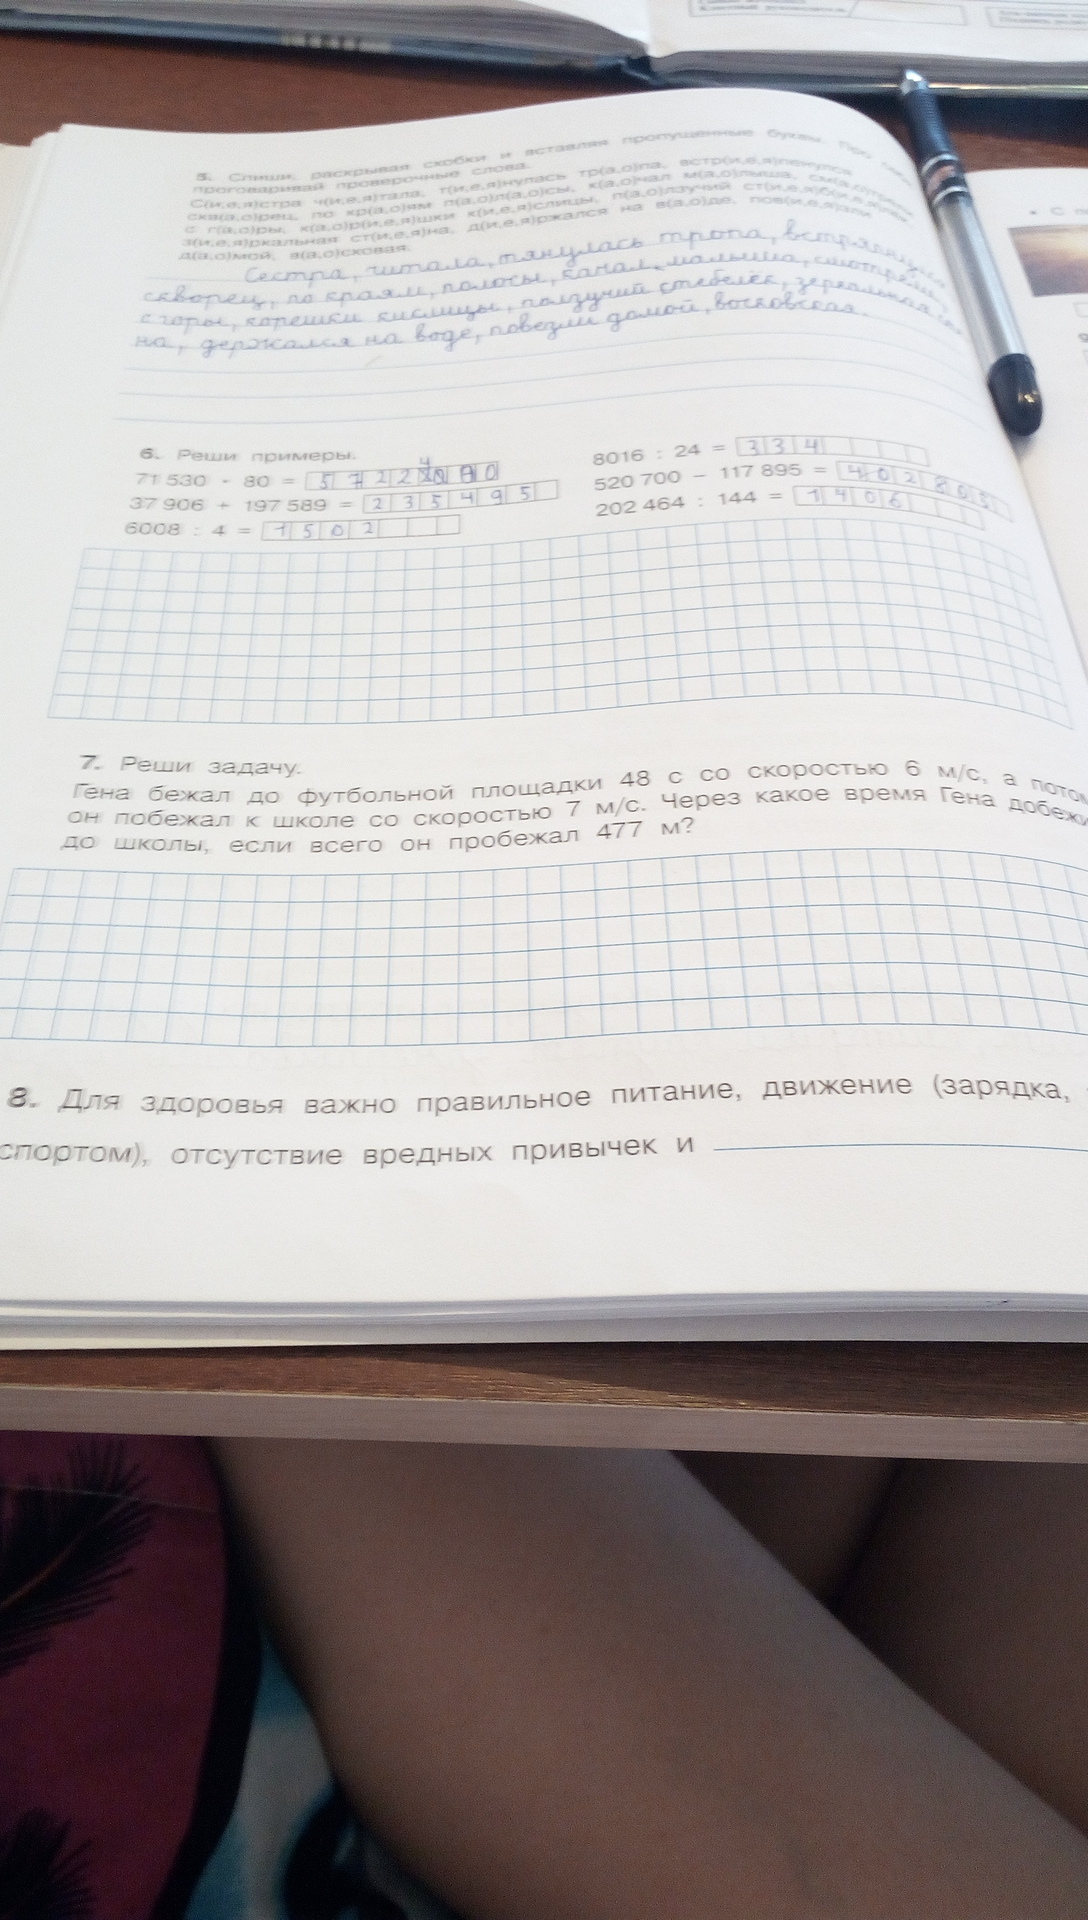 5. Спиши, раскрывая скобки и вставляя пропущенные буквы. При
проговаривай проверочные слова.
С(и,е,я)стра ч(и,е,я)тала, т(и,е,я)нулась тр(а,о)па, встр(и,е,я)пенулся
скв(а,о)рец, по кр(а,о)ям п(а,о)л(а,о)сы, к(а,о)чал м(а,о)лыша,
с г(а,о)ры, к(а,о)р(и,е,я)шки к(и,е,я)слицы, п(а,о)лзучий
з(и,е,я)ркальная ст(и,е,я)на, д(и,е,я)ржался на в(а,о)де, пов(и,е,я)зли
д(а,о)мой, в(а,о)сковая.
Сестра, читала, тянулась тропа,
скворец, по краям, полосы, качал, малыша, смотрели
с горы, корешки кислицы, ползучий стебелёк, зеркальная
на, держался на воде, повезли домой, восковская.
6. Реши примеры.
71 530 · 80 = 5 7 2 2 4 0 0
37 906 + 197 589 = 2 3 5 4 9 5
6008 : 4 = 1 5 0 2
8016 : 24 = 3 3 4
520 700 − 117 895 = 4 0 2 8 0 5
202 464 : 144 = 1 4 0 6
7. Реши задачу.
Гена бежал до футбольной площадки 48 с со скоростью 6 м/с, а потом
он побежал к школе со скоростью 7 м/с. Через какое время Гена добежи
до школы, если всего он пробежал 477 м?
8. Для здоровья важно правильное питание, движение (зарядка,
спортом), отсутствие вредных привычек и